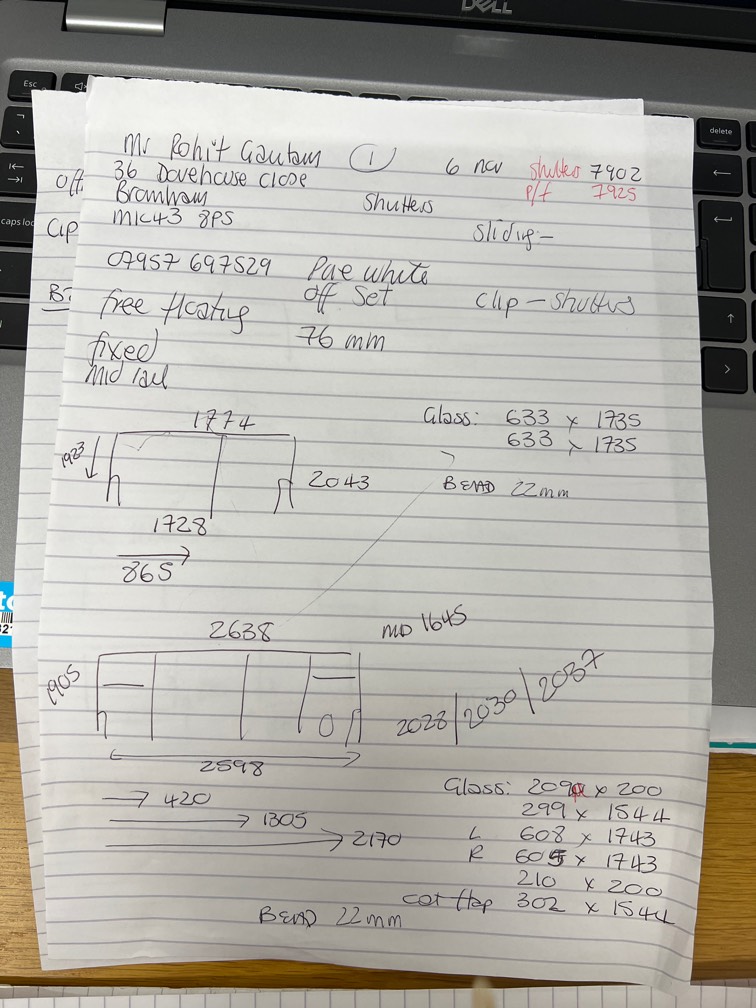 DELL
Esc
delete
caps loc
Mr Rohit Gautam 1 6 nov Shutters 7902
36 Dovehouse Close P/f 7925
Bromham Shutters
MK43 8PS
Sliding –
Off
Clip
07957 697529 Pure white
Off Set Clip – Shutters
free floating
76 mm
fixed
Mid rail
1774
1923
2043
1728
865
Glass: 633 x 1735
633 x 1735
BEAD 22mm
2638
MD 1645
1905
2028 / 2030 / 2037
2598
420
1305
2170
Glass: 209 x 200
299 x 1544
L 608 x 1743
R 605 x 1743
210 x 200
Cat flap 302 x 1544
BEAD 22mm